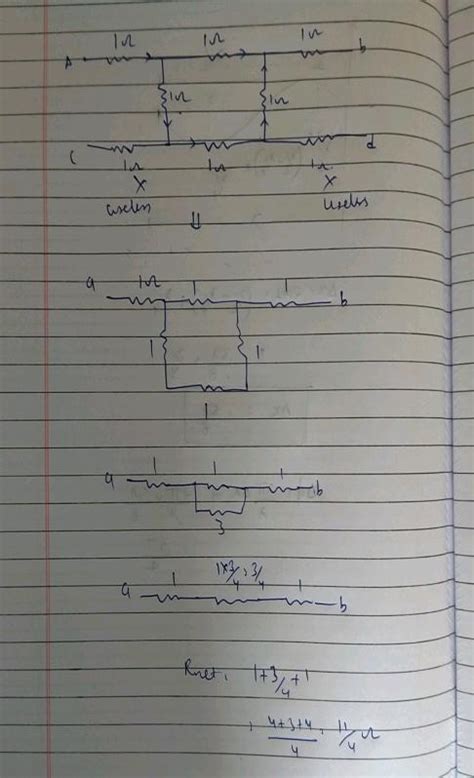 1Ω 1Ω 1Ω
A b
1Ω 1Ω
C d
1Ω 1Ω 1Ω
X X
useless useless
⇓
a 1Ω 1 1 b
1 1
1
a 1 1 1 b
3
1×3/4 = 3/4
a 1 1 b
Rnet = 1+3/4+1
= 4+3+4/4 = 11/4 Ω